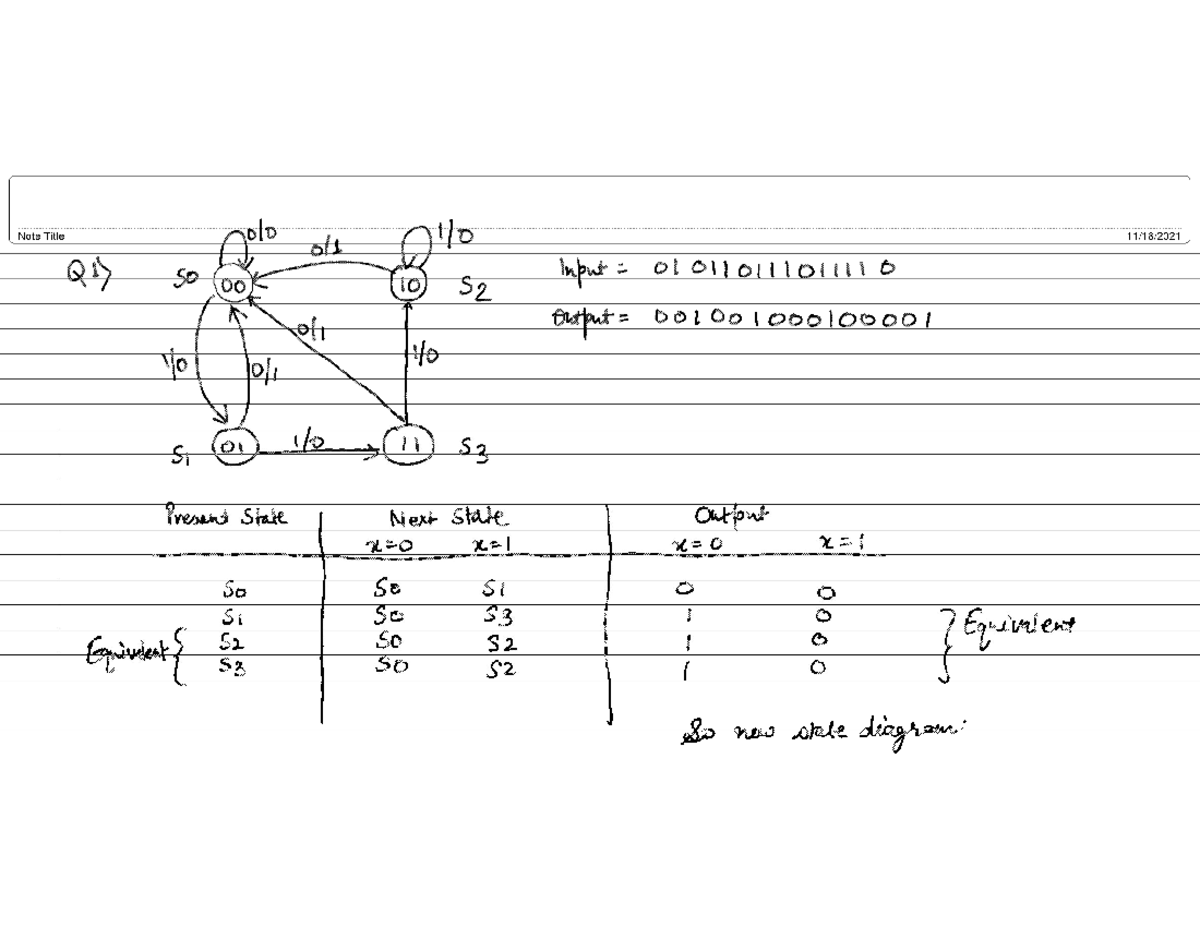 Note Title
11/18/2021
Q1)
0/0
0/1
1/0
S0
00
10
S2
Input = 010110111011110
Output = 001001000100001
0/1
1/0
0/1
1/0
S1
01
1/0
11
S3
Present State Next State Output
x=0 x=1 x=0 x=1
S0 S0 S1 0 0
S1 S0 S3 1 0
S2 S0 S2 1 0
S3 S0 S2 1 0
Equivalent
Equivalent
So new state diagram: